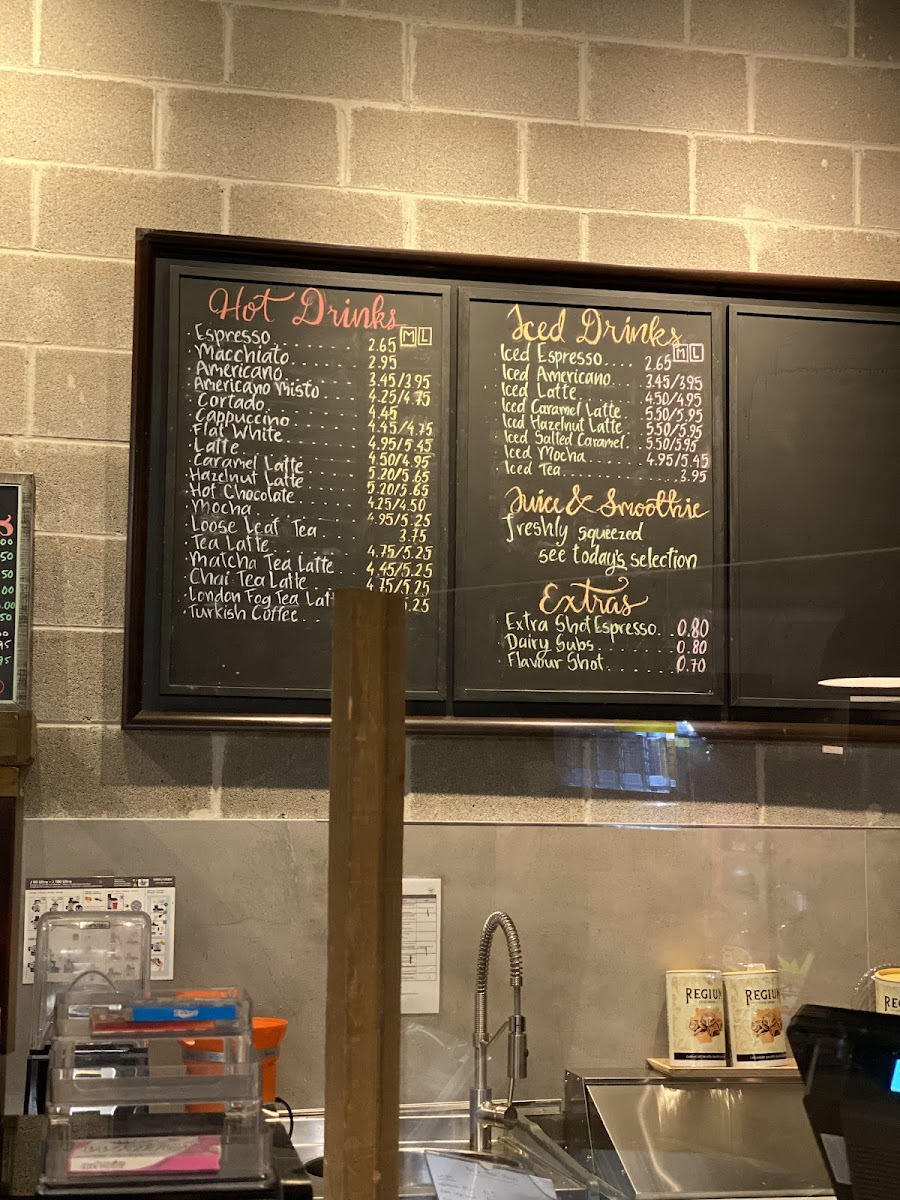 Hot Drinks
M L
Espresso 2.65
Macchiato 2.95
Americano 3.45/3.95
Americano Misto 4.25/4.75
Cortado 4.45
Cappuccino 4.45/4.75
Flat White 4.95/5.45
Latte 4.50/4.95
Caramel Latte 5.20/5.65
Hazelnut Latte 5.20/5.65
Hot Chocolate 4.25/4.50
Mocha 4.95/5.25
Loose Leaf Tea 3.75
Tea Latte 4.75/5.25
Matcha Tea Latte 4.45/5.25
Chai Tea Latte 4.75/5.25
London Fog Tea 5.25
Turkish Coffee
Iced Drinks
M L
Iced Espresso 2.65
Iced Americano 3.45/3.95
Iced Latte 4.50/4.95
Iced Caramel Latte 5.50/5.95
Iced Hazelnut Latte 5.50/5.95
Iced Salted Caramel 5.50/5.95
Iced Mocha 4.95/5.45
Iced Tea 3.95
Juice & Smoothie
freshly squeezed
see today's selection
Extras
Extra Shot Espresso 0.80
Dairy Subs 0.80
Flavour Shot 0.70